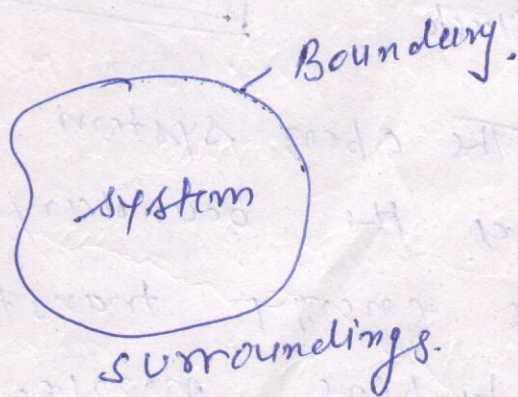 Boundary.
system
surroundings.